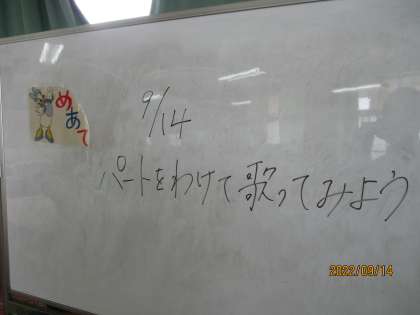 めあて
9/14
パートをわけて歌ってみよう
2022/09/14